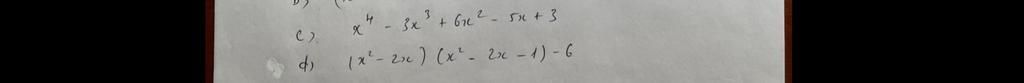 c). x⁴ - 3x³ + 6x² - 5x + 3
d) (x² - 2x) (x² - 2x - 1) - 6